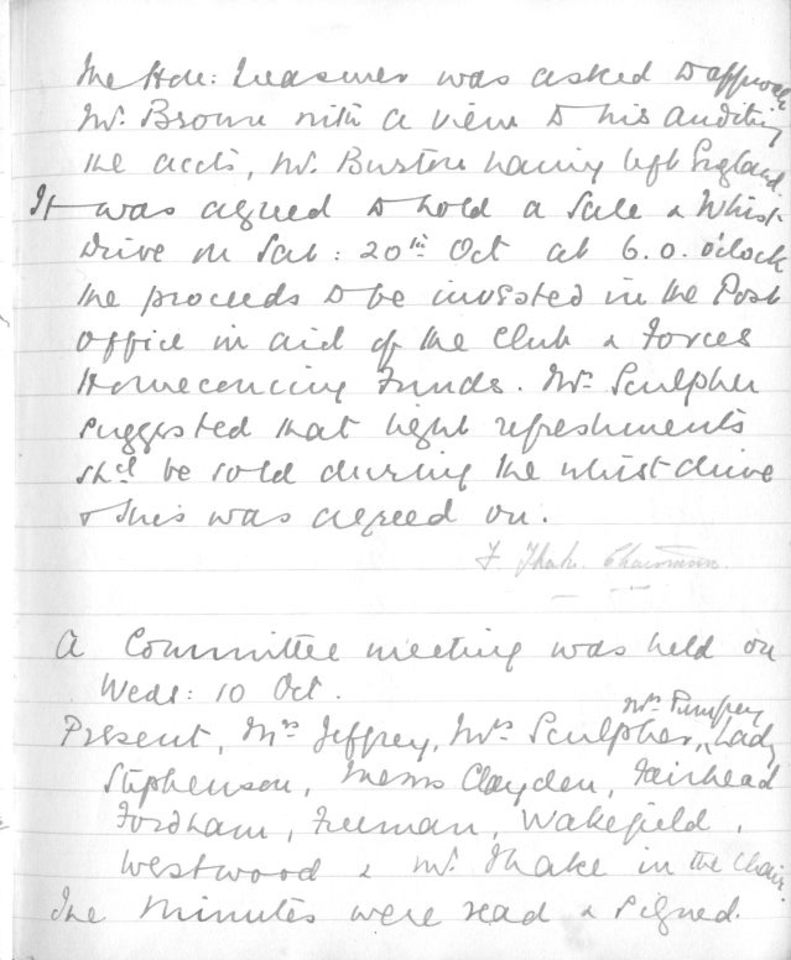 The Hon: Treasurer was asked to approach
Mr. Brown with a view to his auditing
the accts, Mr. Burton having left England.
It was agreed to hold a Sale & Whist
Drive on Sat: 20th Oct at 6.0. o'clock
the proceeds to be invested in the Post
Office in aid of the Club & Forces
Homecoming Funds. Mrs Sculpher
suggested that light refreshments
shd be sold during the whist drive
& this was agreed on.
F. Thake. Chairman.
A Committee meeting was held on
Weds: 10 Oct.
Mrs Pumfrey
Present, Mrs Jeffrey, Mrs Sculpher, Lady
Stephenson, Messrs Clayden, Fairhead
Fordham, Freeman, Wakefield,
Westwood & Mr. Thake in the Chair.
The Minutes were read & signed.